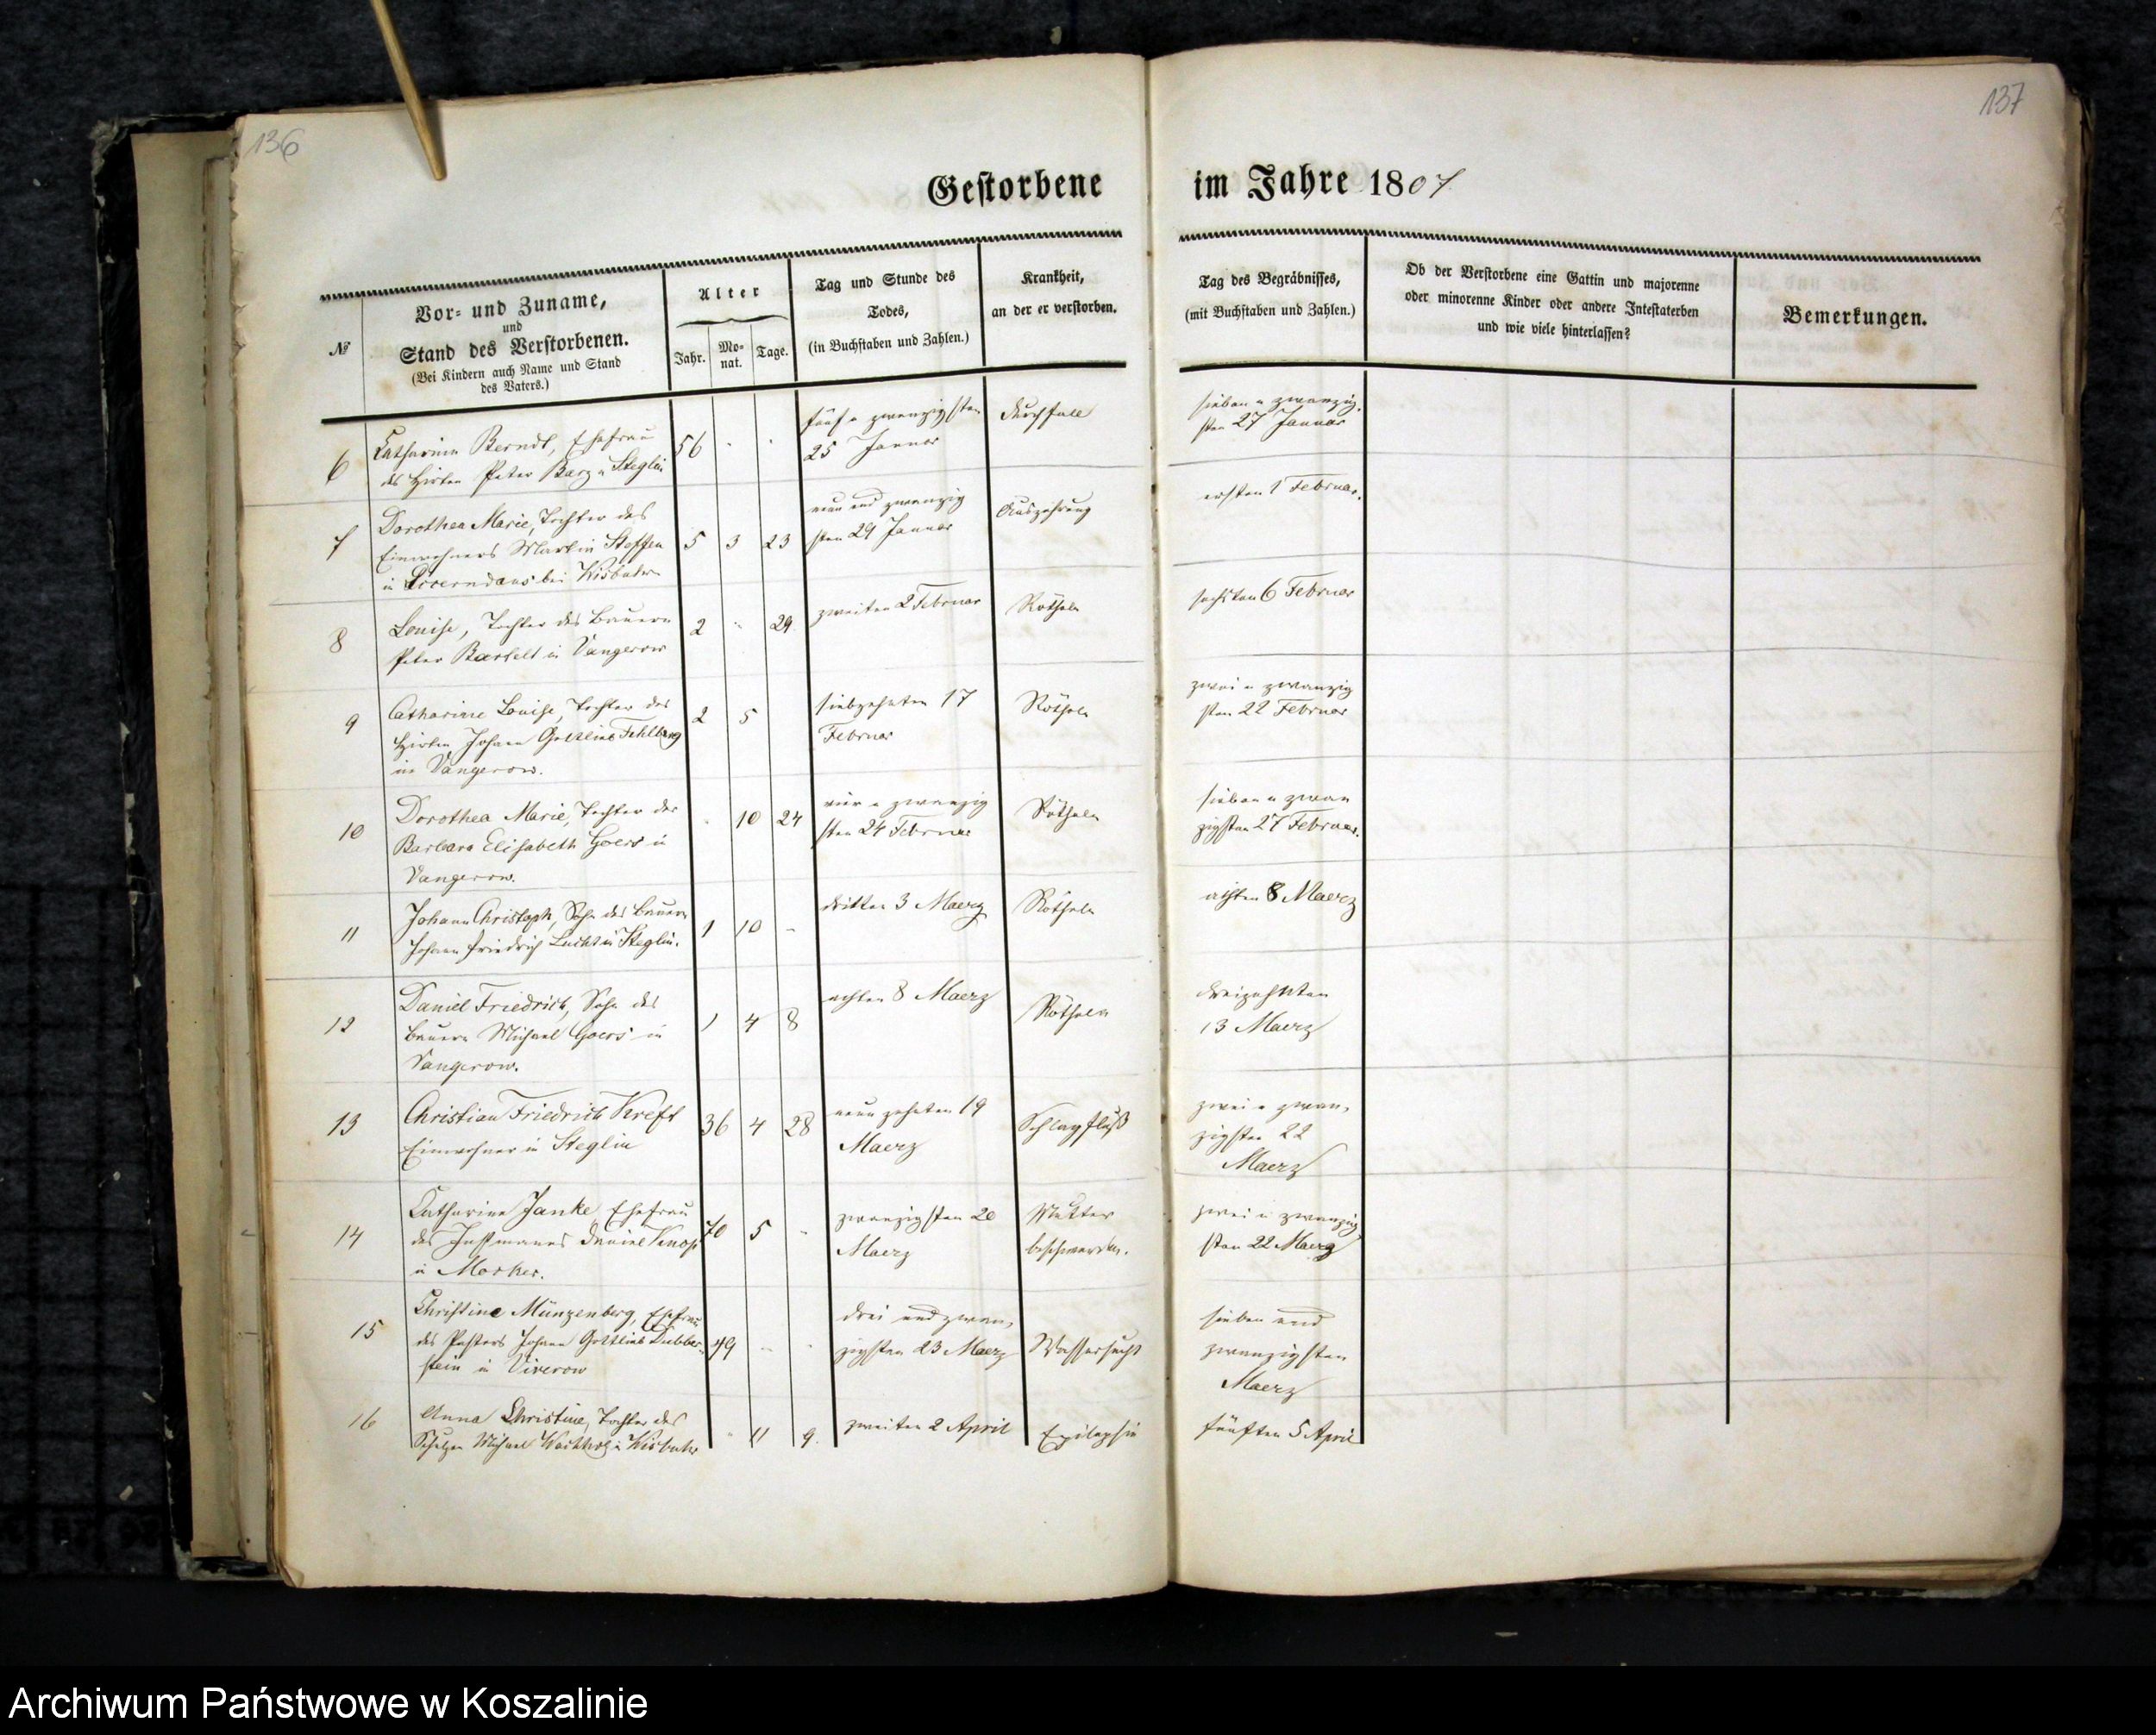 136
137
Gestorbene im Jahre 1807
№
Vor- und Zuname,
und
Stand des Verstorbenen.
(Bei Kindern auch Name und Stand
des Vaters.)
Alter
Jahr.
Mo-
nat.
Tage.
Tag und Stunde des
Todes,
(in Buchstaben und Zahlen.)
Krankheit,
an der er verstorben.
Tag des Begräbnisses,
(mit Buchstaben und Zahlen.)
Ob der Verstorbene eine Gattin und majorenne
oder minorenne Kinder oder andere Intestaterben
und wie viele hinterlassen?
Bemerkungen.
6
Catharina Berndt, Ehefrau
des Hirten Peter Barz in Steglin
56
fünf u zwanzigsten
25 Januar
Durchfall
sieben u zwanzig-
sten 27 Januar
7
Dorothea Marie, Tochter des
Einwohners Martin Steffen
in bei Wisbuhr
5 3 23
neun und zwanzig
sten 29 Januar
Auszehrung
ersten 1 Februar.
8
Louise, Tochter des Bauern
Peter Bartelt in Vangerow
2 " 29
zweiten 2 Februar
Rötheln
sechsten 6 Februar
9
Catharine Louise, Tochter des
Hirten Johann Gottlieb Fehlberg
in Vangerow.
2 5
siebzehnten 17
Februar
Rötheln
zwei u zwanzig
sten 22 Februar
10
Dorothea Marie, Tochter der
Barbara Elisabeth Goers in
Vangerow.
10 24
vier u zwanzig
sten 24 Februar
Rötheln
sieben u zwan
zigsten 27 Februar.
11
Johann Christoph, Sohn des Bauern
Johann Friedrich Lucht in Steglin.
1 10 -
dritten 3 Maerz
Rötheln
achten 8 Maerz
12
Daniel Friedrich, Sohn des
Bauern Michael Goers in
Vangerow.
1 4 8
achten 8 Maerz
Rötheln
dreizehnten
13 Maerz
13
Christian Friedrich Kreft
Einwohner in Steglin
36 4 28
neun zehnten 19
Maerz
Schlagfluß
zwei u zwan-
zigsten 22
Maerz
14
Catharina Janke Ehefrau
des Instmanns Daniel Knop
in Mocker.
70 5 -
zwanzigsten 20
Maerz
Mutter
beschwerden.
zwei u zwanzig
sten 22 Maerz
15
Christine Münzenberg, Ehefrau
des Pastors Johann Gottlieb Dubber-
stein in Viverow
49 - -
drei und zwan-
zigsten 23 Maerz
Wassersucht
sieben und
zwanzigsten
Maerz
16
Anna Christine, Tochter des
Schulzen Michael Wachholz in Wisbuhr
" 11 9.
zweiten 2 April
Epilepsie
fünften 5 April
Archiwum Państwowe w Koszalinie